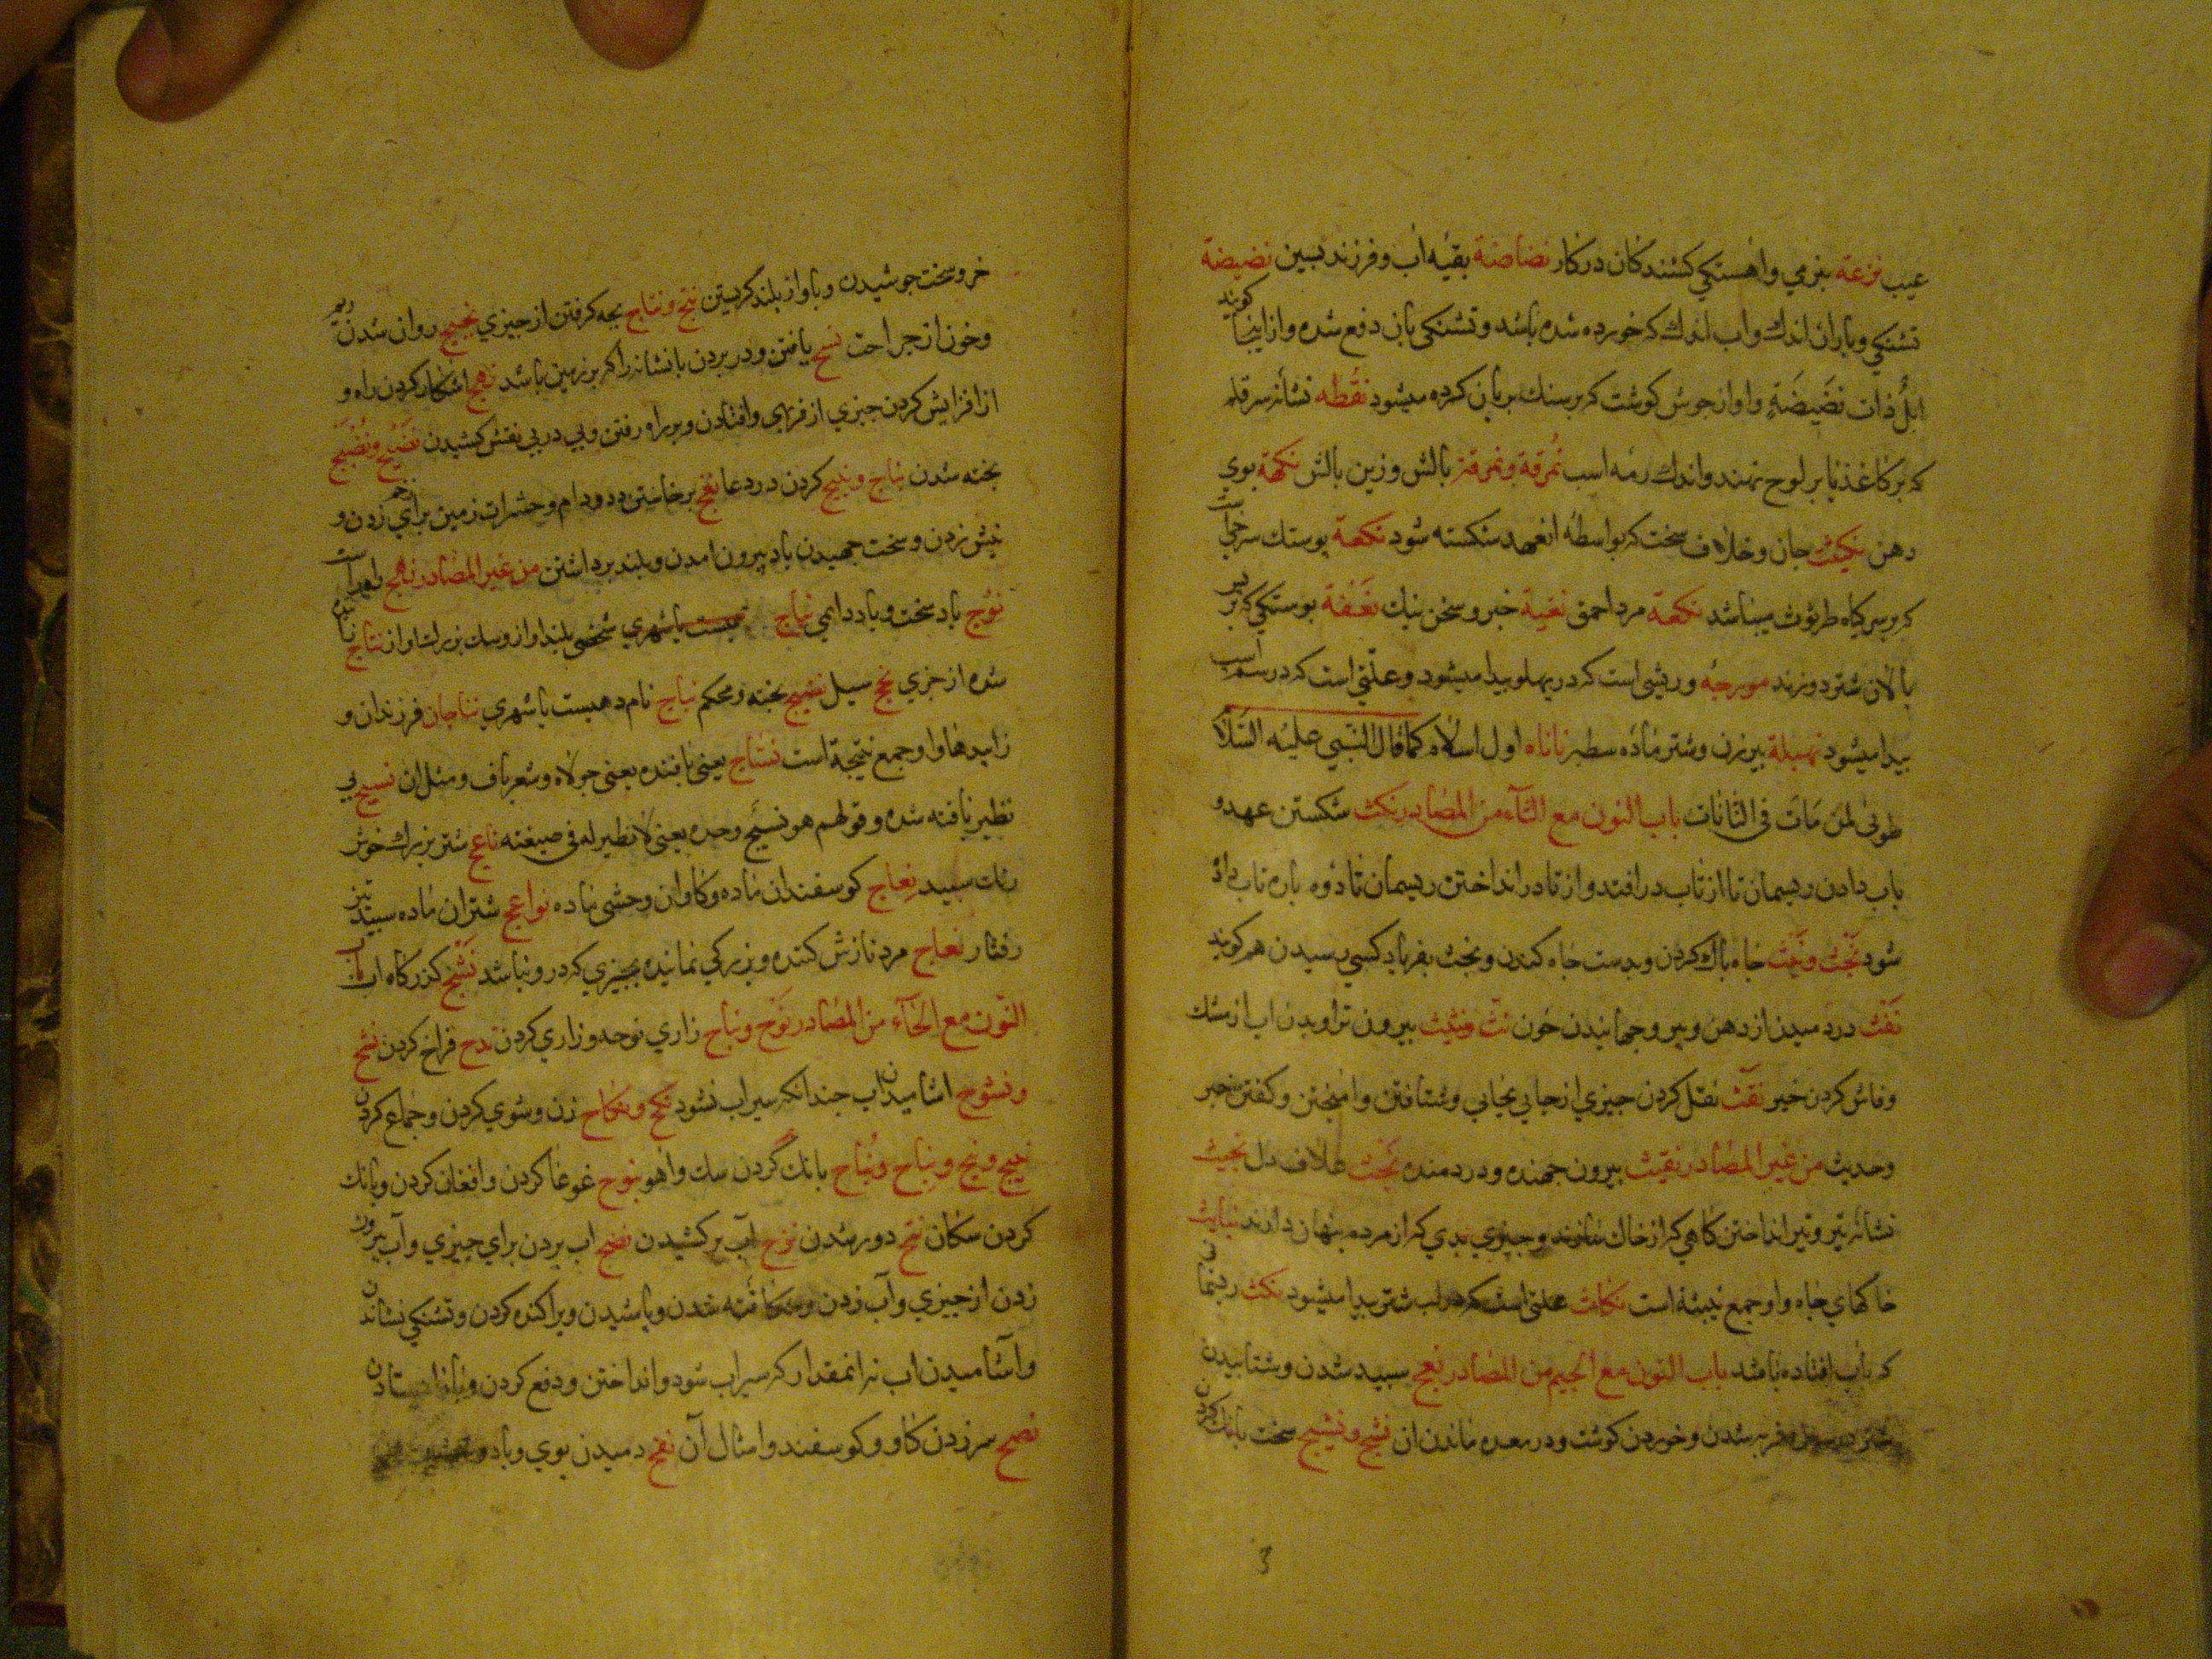 عیب نزعة بنرمي واهستكي كشندكان در كار نضاضة بقیه اب وفرزند پسین نضیضة
تشنكي وباران اندك واب اندك كه خورده شده باشد وتشنكی بان دفع شده وازاینجا كویند
ابلٌ ذات نضیضَةٍ واواز جوش كوشت كه بر سنك بریان كرده میشود نقطه نشانه سر قلم
كه بر كاغذ یا بر لوح نهند واندك رمه اسب نمرقة ونمرقة بالش وزین بالش نكهة بوی
دهن نكیثة جان وخلاف سخت كه بواسطه انعهد شكسته شود نكعة پوستك سرخی است
كه بر سر كیاه طرثوث میباشد نكعة مرد احمق نغیة خبر وسخن نیك نغفة پوستكي كه بر
پالان شتر دوزند وریشی است كه در پهلو پیدا میشود وعلّتی است كه در سم اسب
پیدا میشود نهبلة پیر زن وشتر ماده سطبر نانأه اول اسلام كما قال النّبي علیه السّلام
طوبی لمن مَاتَ فی النّانات باب النون مع الثآء من المصادر نكث شكستن عهد و
باب دادن ریسمان تا از تاب در افتد واز تا در انداختن ریسمان تا دوه باره تاب داد
شود نجث ونجث چاه پاك كردن وبدست چاه كندن ونجث بفریاد كسی رسیدن هم كویند
نفث در دمیدن از دهن وپیر وجهانیدن خون نث ونثیث بیرون تراویدن اب از مشك
وفاش كردن خبر نقث نقل كردن چیزي از جایي بجایي وشتافتن وامیختن وكفتن خبر
وحدیث من غیر المصادر نفیث بیرون جهنده ودردمنده نجث غلاف دل نجیث
نشانه تیر وتیر انداختن كاهي كه از خاك سازند وچیزي بدي كه از مردم پنهان دارند نبایث
خاكهاي چاه واو جمع نبیثة است نكاث علتی است كه در لب شتر پیدا میشود نكث ریسمانی
كه تاب افتاده باشد باب النون مع الجیم من المصادر نعج سپید شدن وشتابیدن
شتر وفربه شدن وخوردن كوشت ودر معده ماندن ان نشج ونشیج سخت بانك كردن
خر وسخت جوشیدن وباواز بلند كریستن نتج ونتاج بچه كرفتن از چیزي نجیج روان شدن ریم
وخون از جراحت نسج یافتن ودر بردن باد نشانه را كه بر زمین باشد نهج اشكار كردن راه و
از افزایش كردن چیزي از فربهی وافتادن وبر راه رفتن وپي در پی نفش كشیدن نضج ونضج
پخته شدن نباج ونبیج كردن در دعا نفج برخاستن دد ودام وحشرات زمین براي زدن و
نیش زدن وسخت جهیدن باد بیرون امدن وبلند برداشتن من غیر المصادر نهج راه راست
نوج باد سخت وباد دایمی نباج شخصی بلند اواز وسك بزرك اواز نتاج
شده از چیزي نج سیل نضیج پخته ومحكم نباج نام دهیست یا شهري نتاجان فرزندان و
زایدها واو جمع نتیجة است نسّاج یعنی بافنده یعنی جولاه وشعر باف ومثل ان نسیج بی
نظیر بافته شده وقولهم هو نسیج وحده یعنی لا نظیر له فی صیغته ناعج شتر بزرك خوش
رنك سپید نعاج كوسفندان ماده وكاوان وحشی ماده نواعج شتران ماده سپید تیز
رفتار نفاج مرد نازش كننده وبزركي نماینده بچیزي كه در و نباشد نشج كذركاه اب باب
النّون مع الحآء من المصادر نوح ونیاح زاري نوحه وزاري كردن ندح فراخ كردن نشح
ونشوح اشامیدن اب چندانكه سیراب نشود نكح ونكاح زن وشوي كردن وجماع كردن
نبیح ونبح ونباح ونُباح بانك كردن سك واهو نبوح غوغا كردن وافغان كردن وبانك
كردن سكان نتح دور شدن نزح آب بر كشیدن نضح اب بردن براي چیزي وآب بیرون
زدن از چیزي وآب زدن وشكافته شدن وپاشیدن وپراكنده كردن وتشنكي نشاندن
واشامیدن اب نه انمقدار كه سیراب شود وانداختن ودفع كردن
نطح سر زدن كاو وكوسفند وامثال آن نفح دمیدن بوي وباد